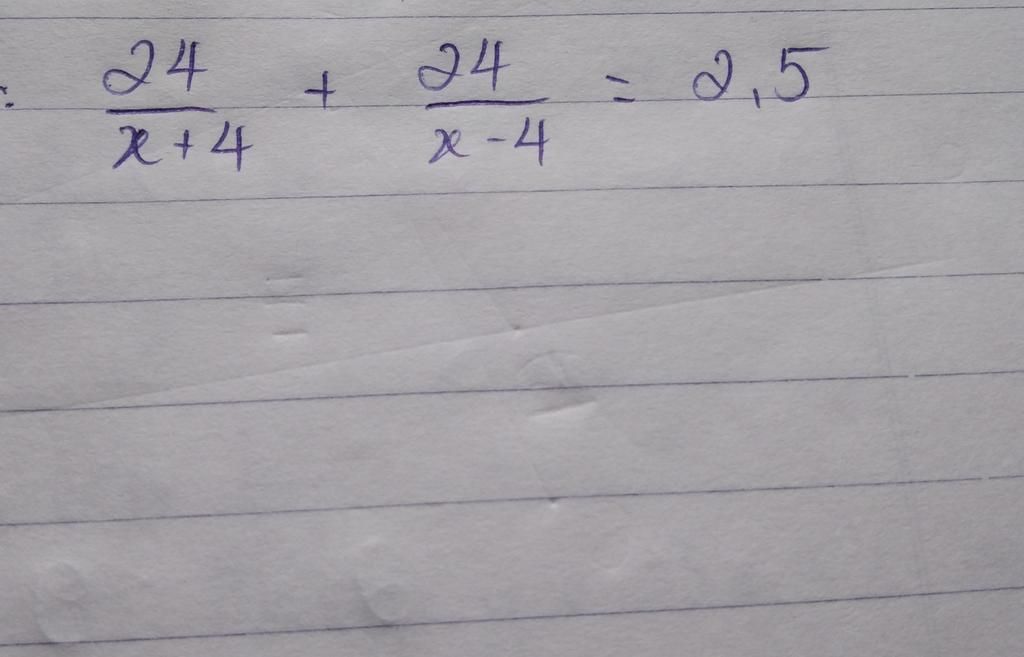 : 24/(x+4) + 24/(x-4) = 2,5